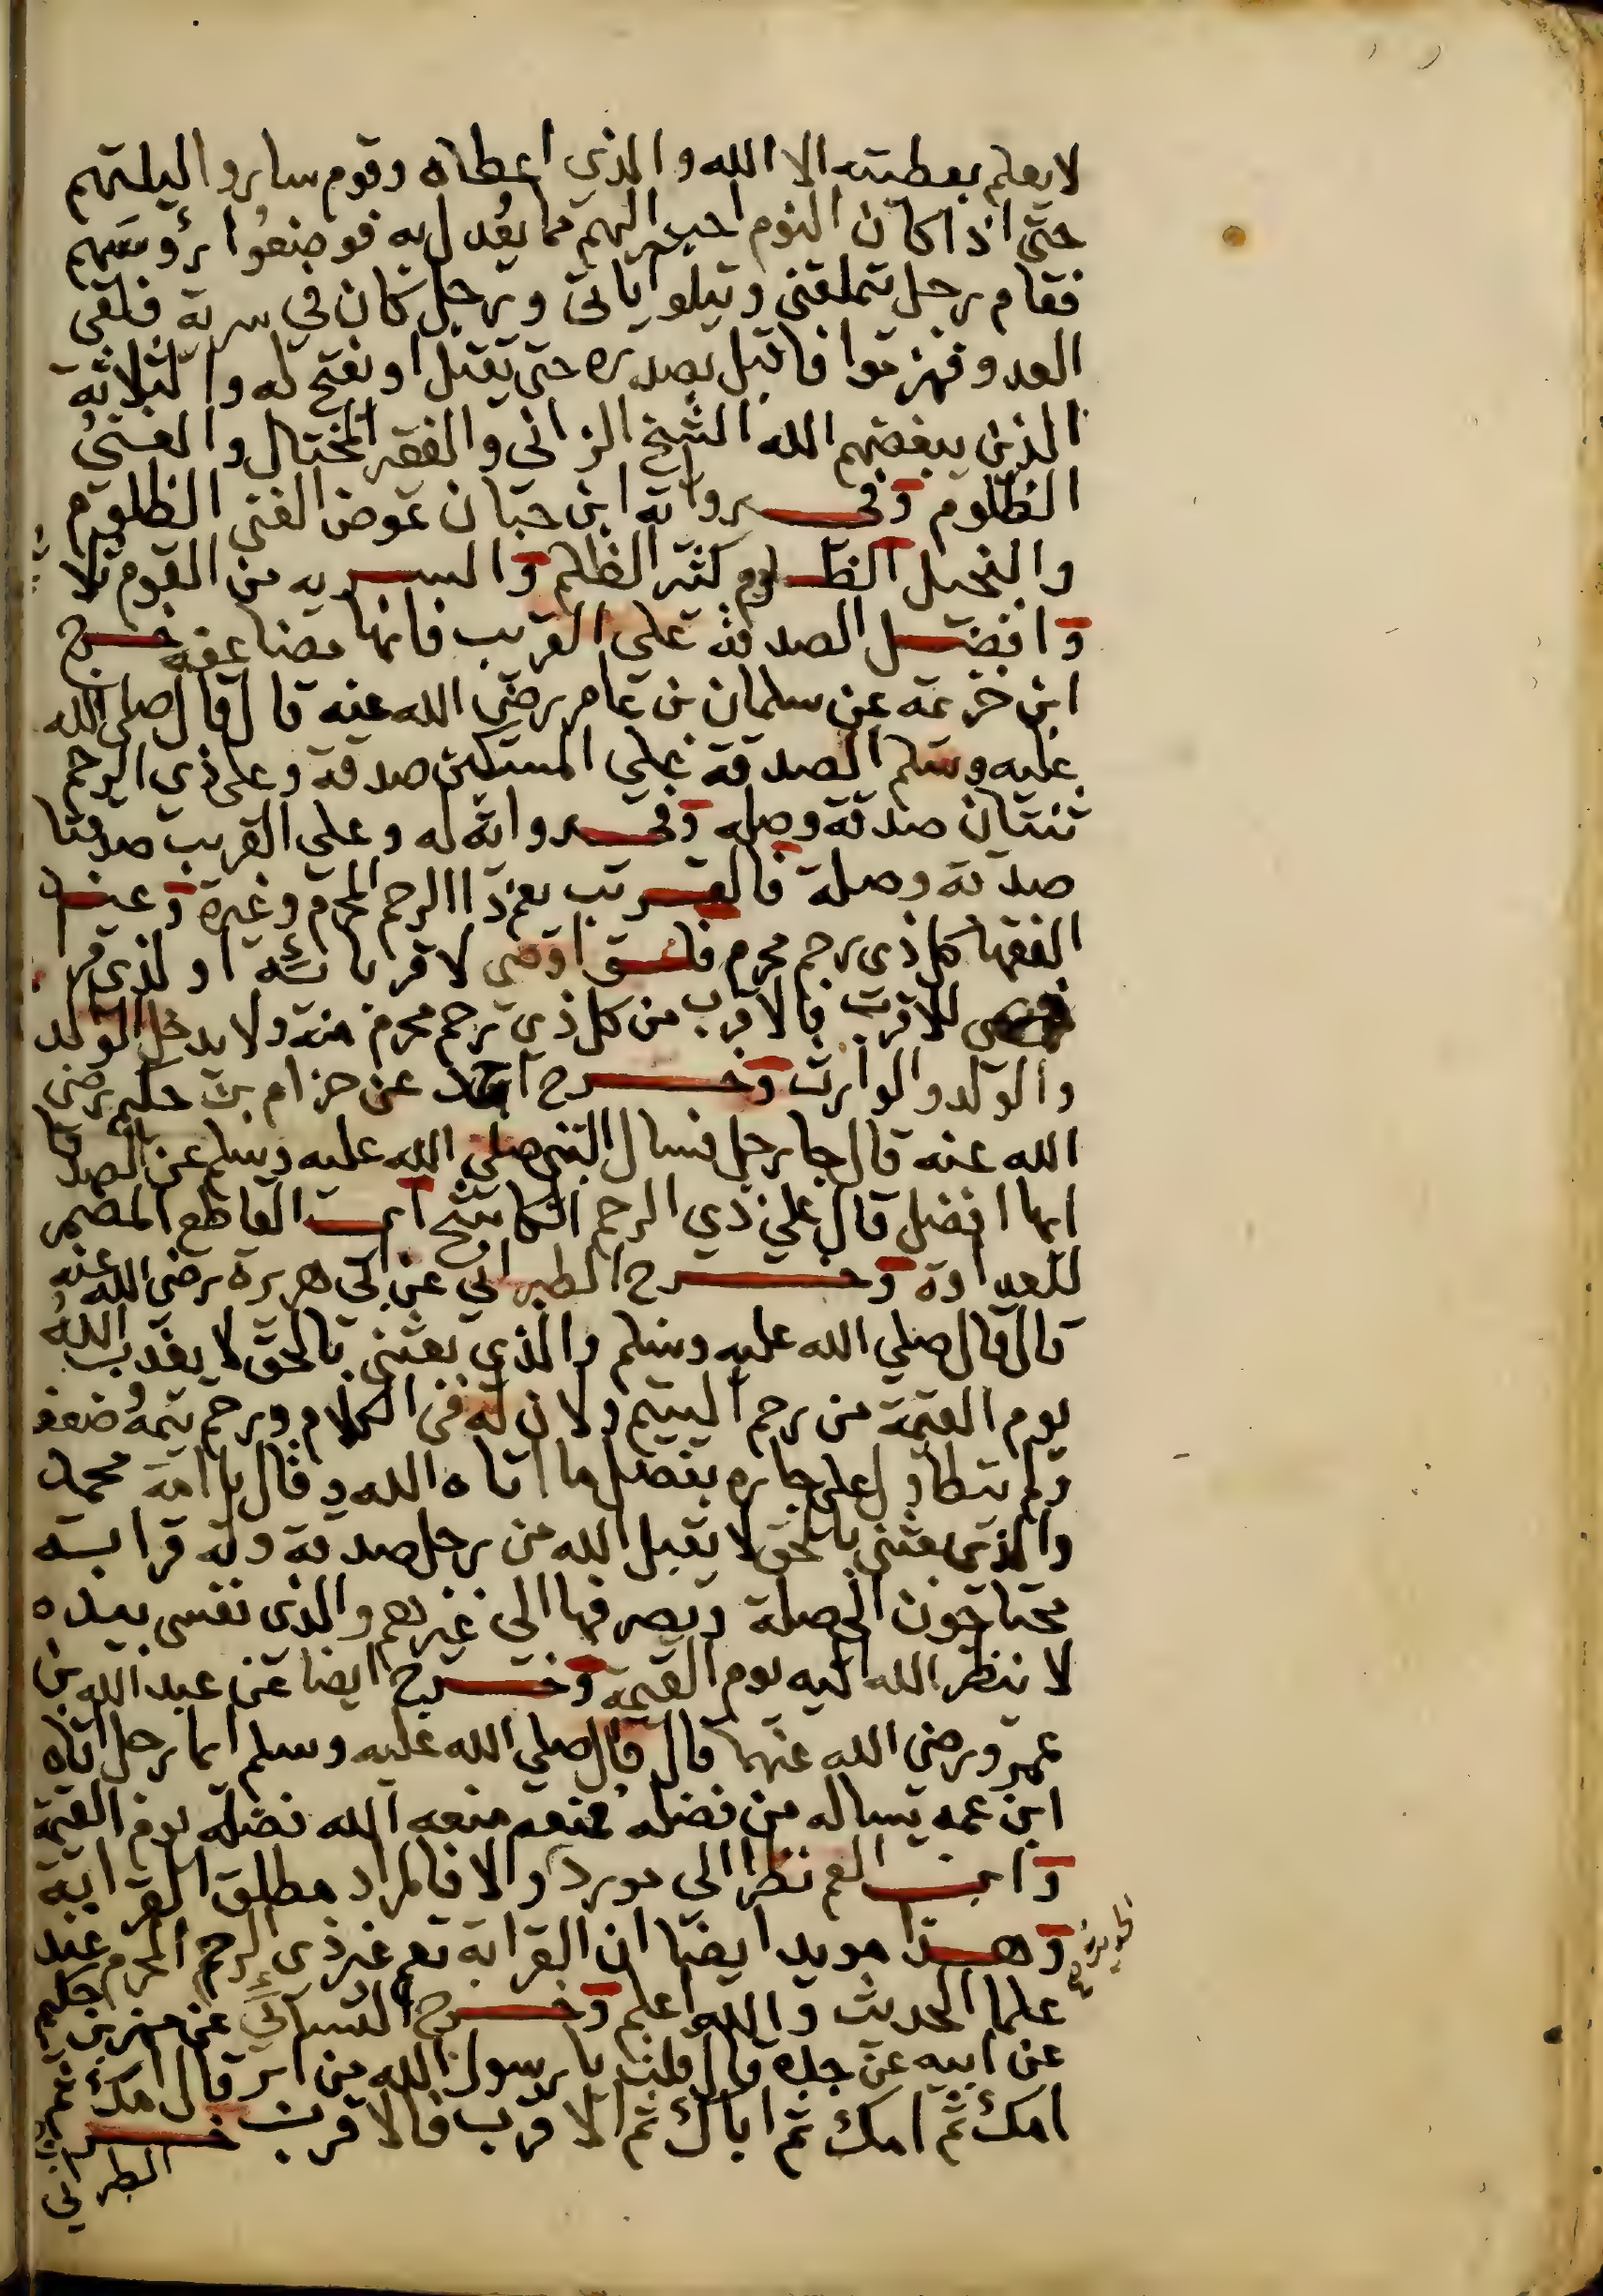 لا يعلم بعطيته الا الله والذي اعطاه وقوم ساروا ليلتهم
حتى اذا كان النوم احب اليهم مما يعدل به فوضعوا رؤسهم
فقام رجل يتملقني ويتلو اياتي ورجل كان في سرية فلقي
العدو فهزموا فاقبل بصدره حتى يقتل او يفتح له والثلاثة
الذين يبغضهم الله الشيخ الزاني والفقير المختال والغني
الظلوم وفي رواية ابن حبان عوض الغني الظلوم
والبخيل الظلوم كثير الظلم والسرية من القوم ثلا
وافضل الصدقة على القريب فانها مضاعفه خرج
ابن خزيمة عن سلمان بن عامر رضي الله عنه قال قال صلى الله
عليه وسلم الصدقة على المسكين صدقة وعلى ذي الرحم
ثنتان صدقة وصله وفي رواية له وعلى القريب صدقتا
صدقة وصلة فالقريب يعم ذا الرحم المحرم وغيره وعند
الفقها كل ذي رحم محرم فلو اوصى لاقربائه او لذي قر
للاقرب فالاقرب من كل ذي رحم محرم منه ولا يدخل الولد
والولد والوارث وخرج احمد عن حزام بن حكيم رضي
الله عنه قال جا رجل فسال النبي صلى الله عليه وسلم عن الصدقا
ايها افضل قال على ذي الرحم الكاشح اي القاطع المضمر
للعداوة وخرج الطبراني عن ابي هريرة رضي الله عنه
قال قال صلى الله عليه وسلم والذي بعثني بالحق لا يعذب الله
يوم القيمة من رحم اليتيم ولان له في الكلام ورحم يتمه وضعفه
ولم يتطاول على جاره بفضل ما اتاه الله وقال يا امة محمد
والذي بعثني بالحق لا يقبل الله من رجل صدقة وله قرابته
محتاجون الى صلة ويصرفها الى غيرهم والذي نفسي بيده
لا ينظر الله اليه يوم القيمة وخرج ايضا عن عبد الله بن
عمرو رضي الله عنهما قال قال صلى الله عليه وسلم ايما رجل اتاه
ابن عمه يساله من فضله فمنعه منعه الله فضله يوم القيمة
وابن العم نظرا الى مورد والا فالمراد مطلق القرابة
وهذا مويد ايضا ان القرابة تعم غير ذي الرحم المحرم عند
علما الحديث والله اعلم وخرج النسائي عن بهز بن حكيم
عن ابيه عن جده قال قلت يا رسول الله من ابر قال امك ثم
امك ثم امك ثم اباك ثم الاقرب فالاقرب خرج
الطبراني